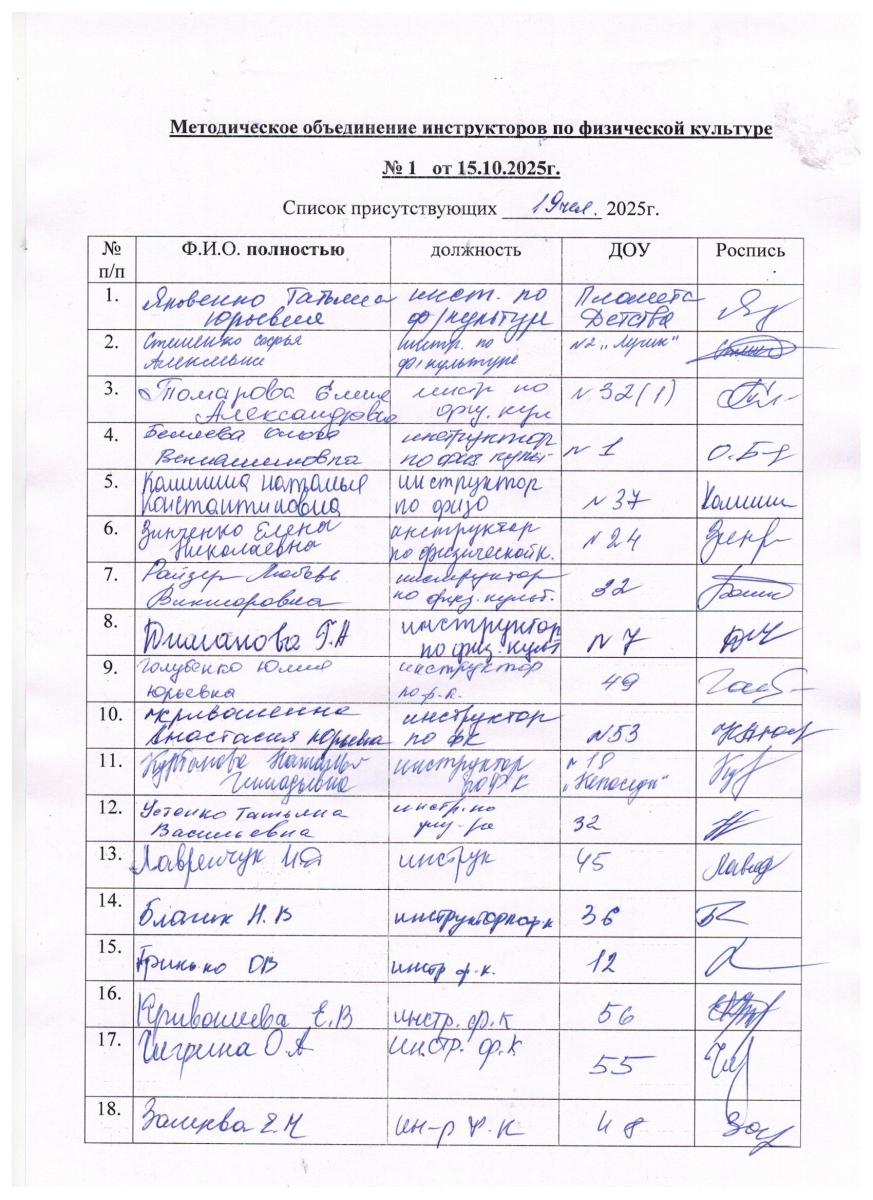 Методическое объединение инструкторов по физической культуре
№ 1 от 15.10.2025г.
Список присутствующих 19чел. 2025г.
№ п/п Ф.И.О. полностью должность ДОУ Роспись
1. Яковенко Татьяна Юрьевна инст. по ф/культуре Планета Детства
2. инстр. по ф/культуре №2 „Лучик"
3. Томарова Елена Александровна инстр по физ. кул №32(1)
4. Беляева Ольга Вениаминовна инструктор по физ. культ №1 О.Б
5. Калишина Наталья Константиновна инструктор по физо №37
6. Зинченко Елена Николаевна инструктор по физической к. №24
7. Райзер Любовь Викторовна инструктор по физ. культ. 32
8. Диманова Г.А инструктор по физ. культ №7
9. Голубенко Юлия Юрьевна инструктор по ф.к. 49
10. Анастасия Юрьевна инструктор по ФК №53
11. Курбанова Наталья Геннадьевна инструктор по ФК №18 „Непоседы"
12. Устенко Татьяна Васильевна инстр. по физ-ре 32
13. Лавренчук инструк 45
14. Н.В инструктор по ф к 36
15. Гринько ОВ инстр ф.к. 12
16. Кривошеева Е.В инстр. ф.к 56
17. Чигрина О.А Инстр. ф.к 55
18. ин-р Ф.К 48